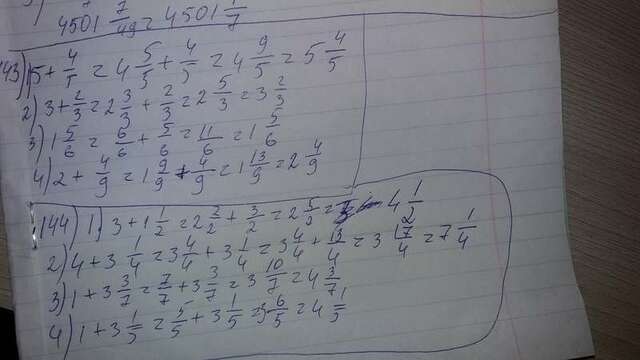 4501 7/49 = 4501 1/7
143) 1) 5 + 4/5 = 4 5/5 + 4/5 = 4 9/5 = 5 4/5
2) 3 + 2/3 = 2 3/3 + 2/3 = 2 5/3 = 3 2/3
3) 1 5/6 = 6/6 + 5/6 = 11/6 = 1 5/6
4) 2 + 4/9 = 1 9/9 + 4/9 = 1 13/9 = 2 4/9
144) 1) 3 + 1 1/2 = 2 2/2 + 3/2 = 2 5/2 = 4 1/2
2) 4 + 3 1/4 = 3 4/4 + 3 1/4 = 3 4/4 + 13/4 = 3 17/4 = 7 1/4
3) 1 + 3 3/7 = 7/7 + 3 3/7 = 3 10/7 = 4 3/7
4) 1 + 3 1/5 = 5/5 + 3 1/5 = 3 6/5 = 4 1/5